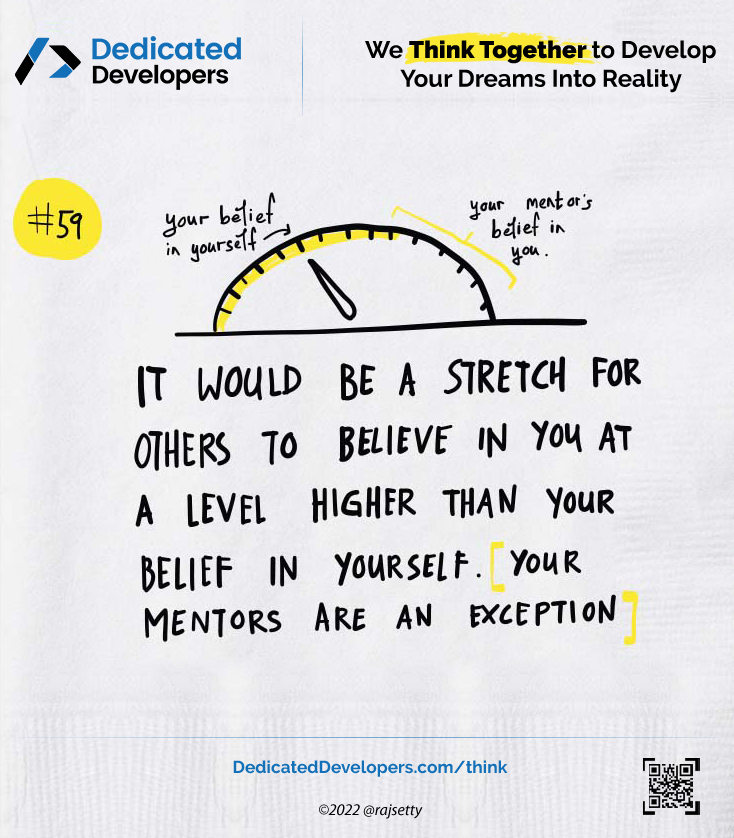 Dedicated
Developers
We Think Together to Develop
Your Dreams Into Reality
#59
your belief
in yourself
your mentor's
belief in
you.
IT WOULD BE A STRETCH FOR
OTHERS TO BELIEVE IN YOU AT
A LEVEL HIGHER THAN YOUR
BELIEF IN YOURSELF. [YOUR
MENTORS ARE AN EXCEPTION]
DedicatedDevelopers.com/think
©2022 @rajsetty